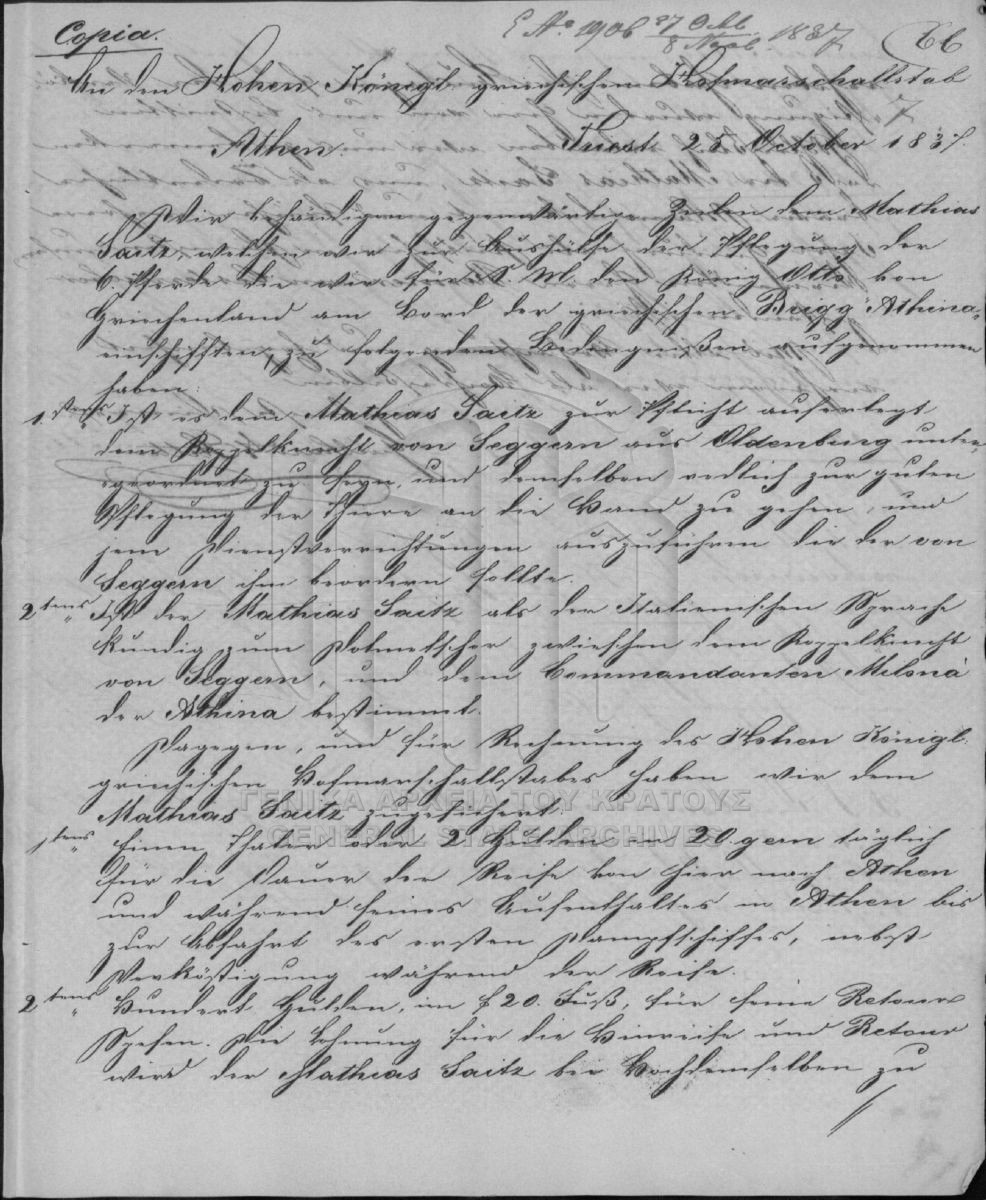 Copia.
E No 1906 27 Octb 1837
8 Novb
66
An den Hohen Königl griechischen Hofmarschallstab
Athen. Triest 25 October 1837.
Wir behändigen gegenwärtige Zeilen dem Mathias
Saitz, welchen wir zur Aushülfe der Pflegung der
6. Pferde die wir für S. M. den König Otto von
Griechenland am Bord der griechischen Brigg Athina
einschifften, zu folgenden Bedingnißen aufgenommen
haben:
1stens Ist es dem Mathias Saitz zur Pflicht auferlegt
dem Koppelknecht von Seggern aus Oldenburg unter-
geordnet zu seyn, und demselben redlich zur guten
Pflegung der Thiere an die Hand zu gehen, und
jene Dienstverrichtungen auszuführen die der von
Seggern ihm beordern sollte.
2tens Ist der Mathias Saitz als der Italienischen Sprache
kundig zum Dolmetscher zwischen dem Koppelknecht
von Seggern, und dem Commandanten Milsnà
der Athina bestimmt.
Dagegen, und für Rechnung des Hohen Königl.
griechischen Hofmarschallstabes haben wir dem
Mathias Saitz zugesichert:
1tens Einen Thaler oder 2 Gulden 20.gern täglich
für die Dauer der Reise von hier nach Athen
und während seines Aufenthaltes in Athen bis
zur Abfahrt des ersten Dampfschiffes, nebst
Verköstigung während der Reise.
2tens Hundert Gulden, im f 20. Fuß, für seine Retour
Spesen. Die Lohnung für die Hinreise und Retour
wird der Mathias Saitz bei Hochdemselben zu
ΓΕΝΙΚΑ ΑΡΧΕΙΑ ΤΟΥ ΚΡΑΤΟΥΣ
GENERAL STATE ARCHIVES